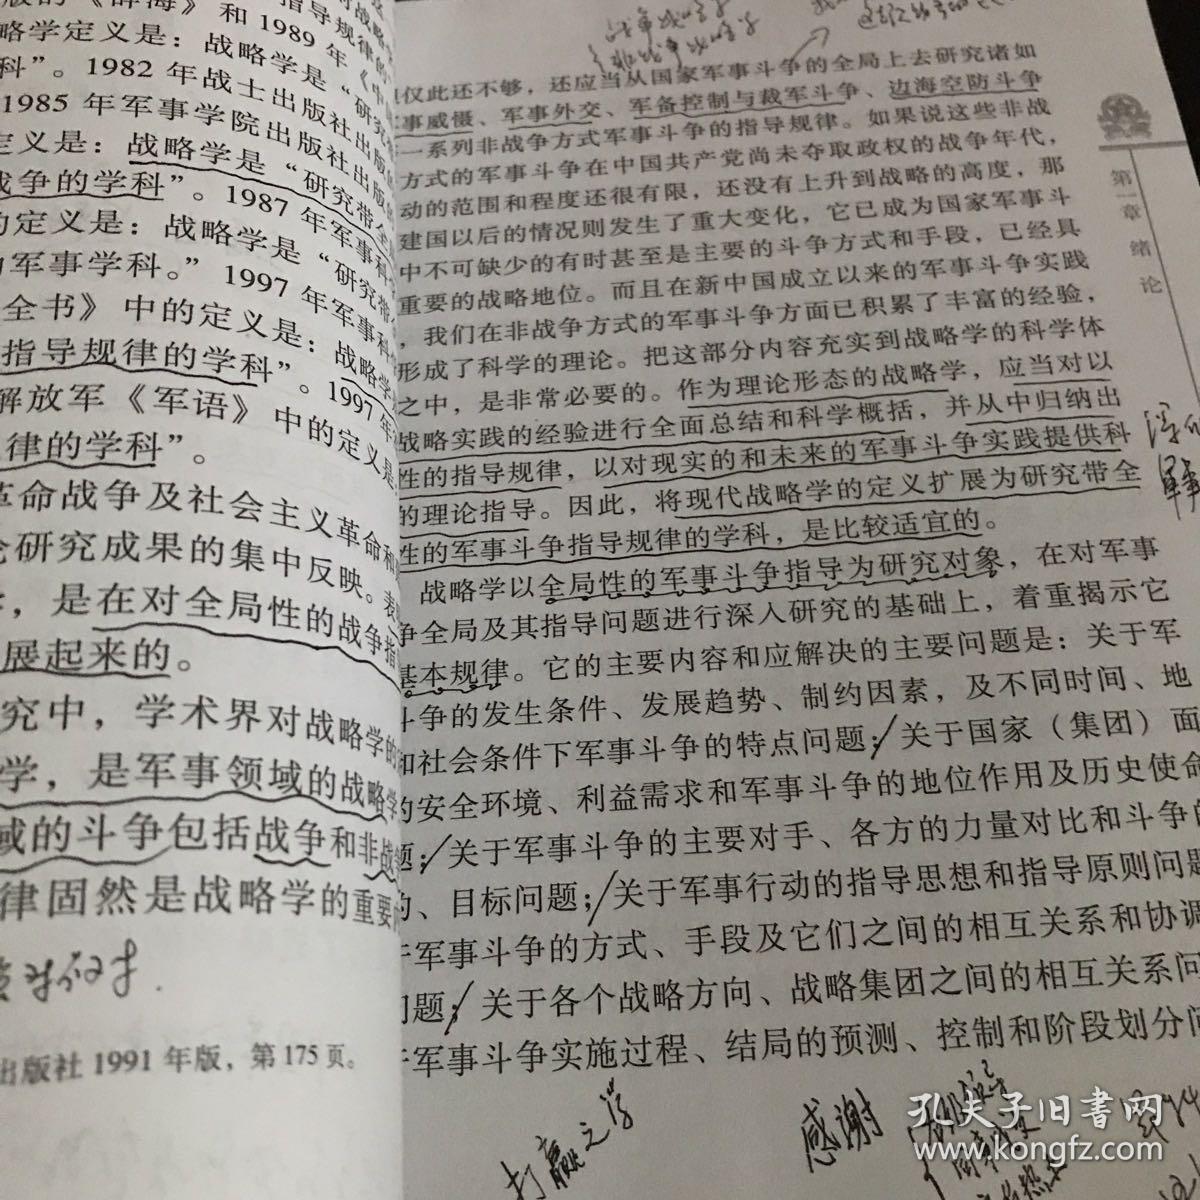 版的《辞海》和 1989 年《中
略学定义是：战略学是“研究
科”。1982 年战士出版社出版
1985 年军事学院出版社出版
定义是：战略学是“研究带全
战争的学科”。1987 年军事科
的定义是：战略学是“研究带
的军事学科。”1997 年军事科
全书》中的定义是：战略学
指导规律的学科”。1997 年
解放军《军语》中的定义是
律的学科”。
革命战争及社会主义革命和
论研究成果的集中反映。表
，是在对全局性的战争指
展起来的。
究中，学术界对战略学的
学，是军事领域的战略学
域的斗争包括战争和非战
律固然是战略学的重要
出版社 1991 年版，第 175 页。
仅此还不够，还应当从国家军事斗争的全局上去研究诸如
事威慑、军事外交、军备控制与裁军斗争、边海空防斗争
一系列非战争方式军事斗争的指导规律。如果说这些非战
方式的军事斗争在中国共产党尚未夺取政权的战争年代，
动的范围和程度还很有限，还没有上升到战略的高度，那
建国以后的情况则发生了重大变化，它已成为国家军事斗
中不可缺少的有时甚至是主要的斗争方式和手段，已经具
重要的战略地位。而且在新中国成立以来的军事斗争实践
，我们在非战争方式的军事斗争方面已积累了丰富的经验，
形成了科学的理论。把这部分内容充实到战略学的科学体
之中，是非常必要的。作为理论形态的战略学，应当对以
战略实践的经验进行全面总结和科学概括，并从中归纳出
性的指导规律，以对现实的和未来的军事斗争实践提供科
的理论指导。因此，将现代战略学的定义扩展为研究带全
性的军事斗争指导规律的学科，是比较适宜的。
战略学以全局性的军事斗争指导为研究对象，在对军事
争全局及其指导问题进行深入研究的基础上，着重揭示它
基本规律。它的主要内容和应解决的主要问题是：关于军
斗争的发生条件、发展趋势、制约因素，及不同时间、地
和社会条件下军事斗争的特点问题；关于国家（集团）面
的安全环境、利益需求和军事斗争的地位作用及历史使命
题；关于军事斗争的主要对手、各方的力量对比和斗争的
、目标问题；关于军事行动的指导思想和指导原则问题
于军事斗争的方式、手段及它们之间的相互关系和协调
问题；关于各个战略方向、战略集团之间的相互关系问
于军事斗争实施过程、结局的预测、控制和阶段划分问
第一章 绪论
打赢之学
感谢
孔夫子旧书网
www.kongfz.com